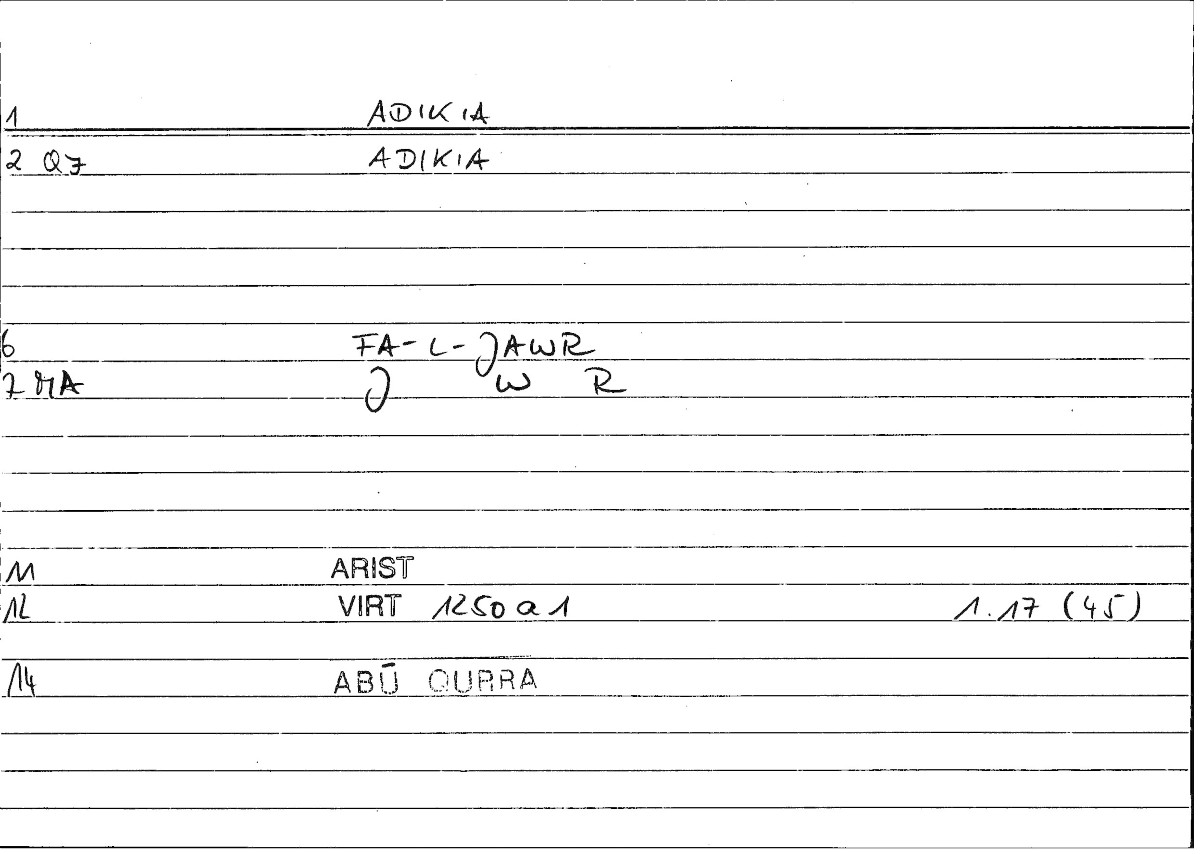 1 ADIKIA
2 Q7 ADIKIA
6 FA-L-JAWR
7 MA J W R
11 ARIST
12 VIRT 1250 a 1 1.17 (45)
14 ABŪ QURRA